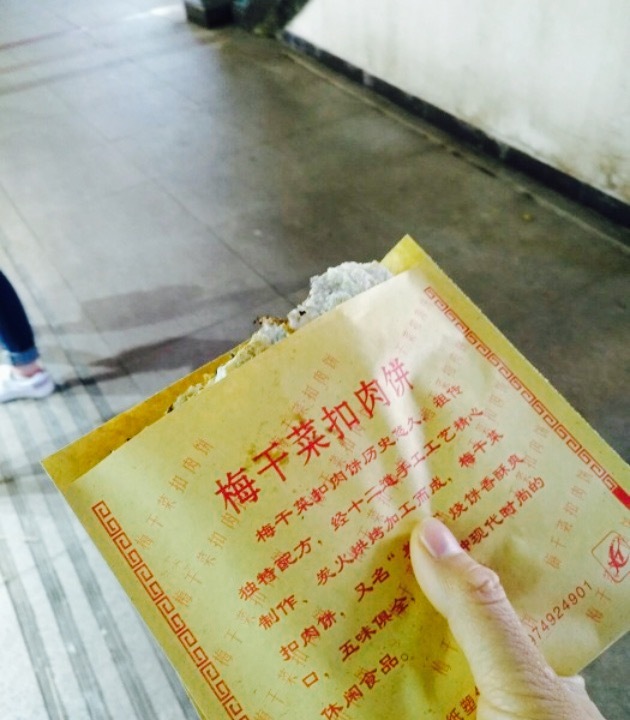 梅干菜扣肉饼
梅干菜扣肉饼历史悠久，祖传
独特配方，经十二道手工工艺精心
制作、炭火烘烤加工而成，梅干菜
扣肉饼，又名" 烧饼香酥爽
口，五味俱全， 现代时尚的
休闲食品。
074924901